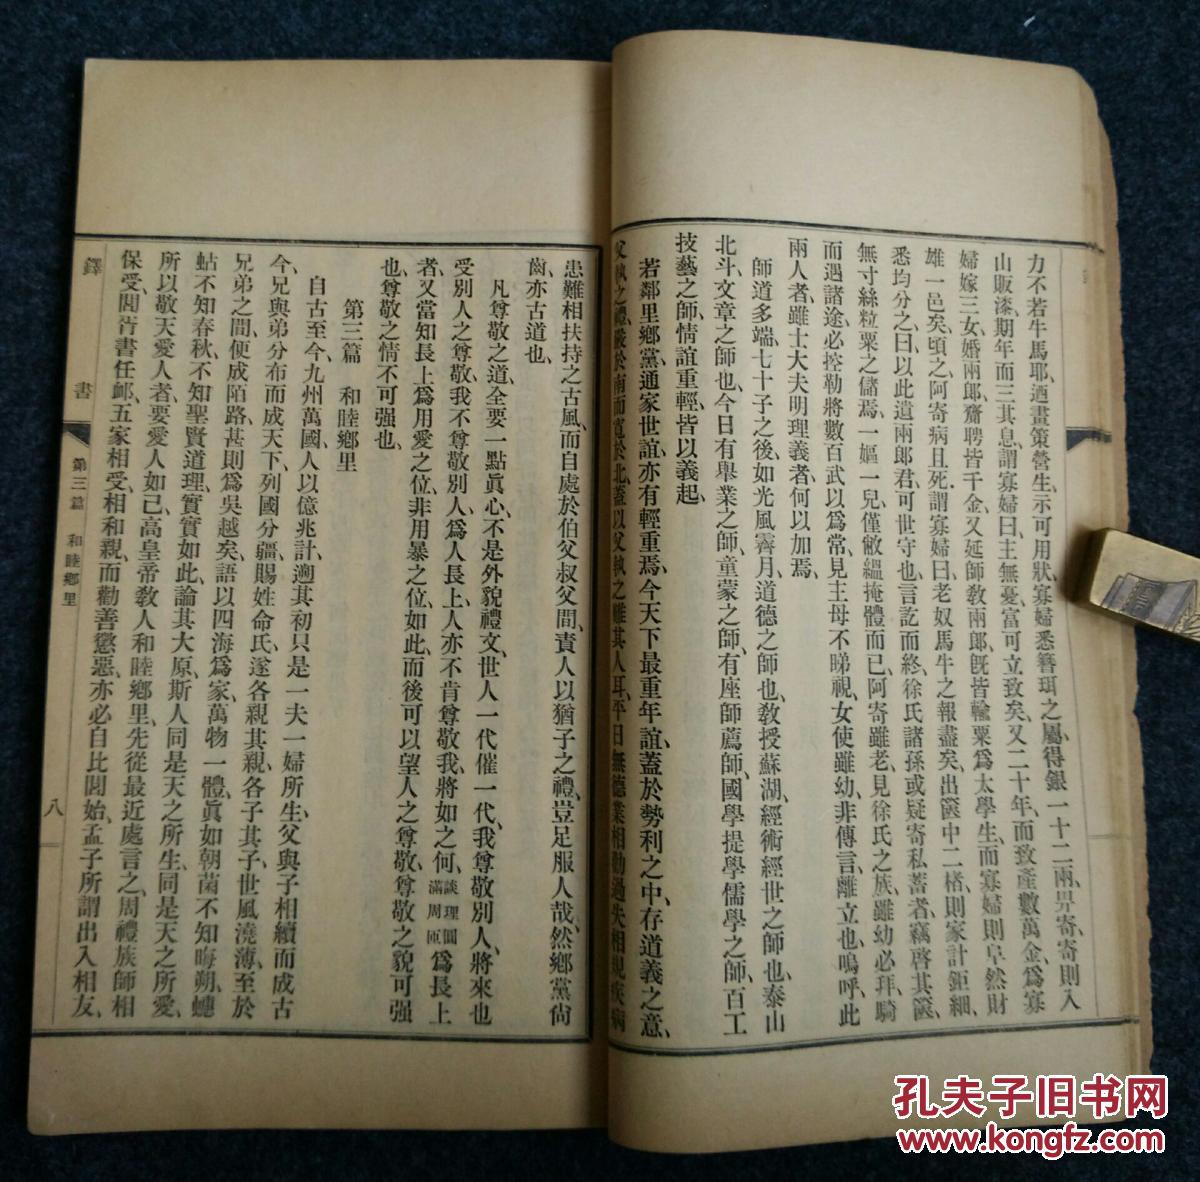 力不若牛馬耶、迺畫策營生、示可用狀、寡婦悉簪珥之屬、得銀一十二兩、畀寄、寄則入
山販漆、期年而三其息、謂寡婦曰、主無憂、富可立致矣、又二十年、而致產數萬金、爲寡
婦嫁三女、婚兩郎、齎聘皆千金、又延師教兩郎、旣皆輸粟爲太學生、而寡婦則阜然財
雄一邑矣、頃之阿寄病且死、謂寡婦曰老奴馬牛之報盡矣、出篋中二楮、則家計鉅細、
悉均分之、曰以此遺兩郎君、可世守也、言訖而終、徐氏諸孫或疑寄私蓄者、竊啓其篋、
無寸絲粒粟之儲焉、一嫗一兒、僅敝縕掩體而已、阿寄雖老、見徐氏之族、雖幼必拜、騎
而遇諸途、必控勒將數百武以爲常、見主母不睇視、女使雖幼、非傳言、離立也、嗚呼、此
兩人者、雖士大夫明理義者、何以加焉、
師道多端、七十子之後、如光風霽月、道德之師也、教授蘇湖、經術經世之師也、泰山
北斗、文章之師也、今日有舉業之師、童蒙之師、有座師薦師、國學提學儒學之師、百工
技藝之師、情誼重輕、皆以義起、
若鄰里鄉黨、通家世誼、亦有輕重焉、今天下最重年誼、蓋於勢利之中、存道義之意、
父執之禮、嚴於南而寬於北、蓋以父執之雖其人耳、平日無德業相勸過失相規疾病
患難相扶持之古風、而自處於伯父叔父間、責人以猶子之禮、豈足服人哉、然鄉黨尙
齒、亦古道也、
凡尊敬之道、全要一點眞心、不是外貌禮文、世人一代催一代、我尊敬別人、將來也
受別人之尊敬、我不尊敬別人、爲人長上、人亦不肯尊敬我、將如之何、談理圓滿周匝爲長上
者、又當知長上爲用愛之位、非用暴之位、如此、而後可以望人之尊敬、尊敬之貌可强
也、尊敬之情不可强也、
第三篇 和睦鄉里
自古至今、九州萬國、人以億兆計、遡其初只是一夫一婦所生、父與子相續而成古
今、兄與弟分布而成天下、列國分疆、賜姓命氏、遂各親其親、各子其子、世風澆薄、至於
兄弟之間、便成陌路、甚則爲吳越矣、語以四海爲家、萬物一體、眞如朝菌不知晦朔、蟪
蛄不知春秋、不知聖賢道理、實實如此、論其大原、斯人同是天之所生、同是天之所愛、
所以敬天愛人者、要愛人如己、高皇帝敎人和睦鄉里、先從最近處言之、周禮族師相
保受、閭胥書任䘏、五家相受、相和親、而勸善懲惡、亦必自比閭始、孟子所謂出入相友、
鐸書 第三篇 和睦鄉里 八
孔夫子旧书网
www.kongfz.com